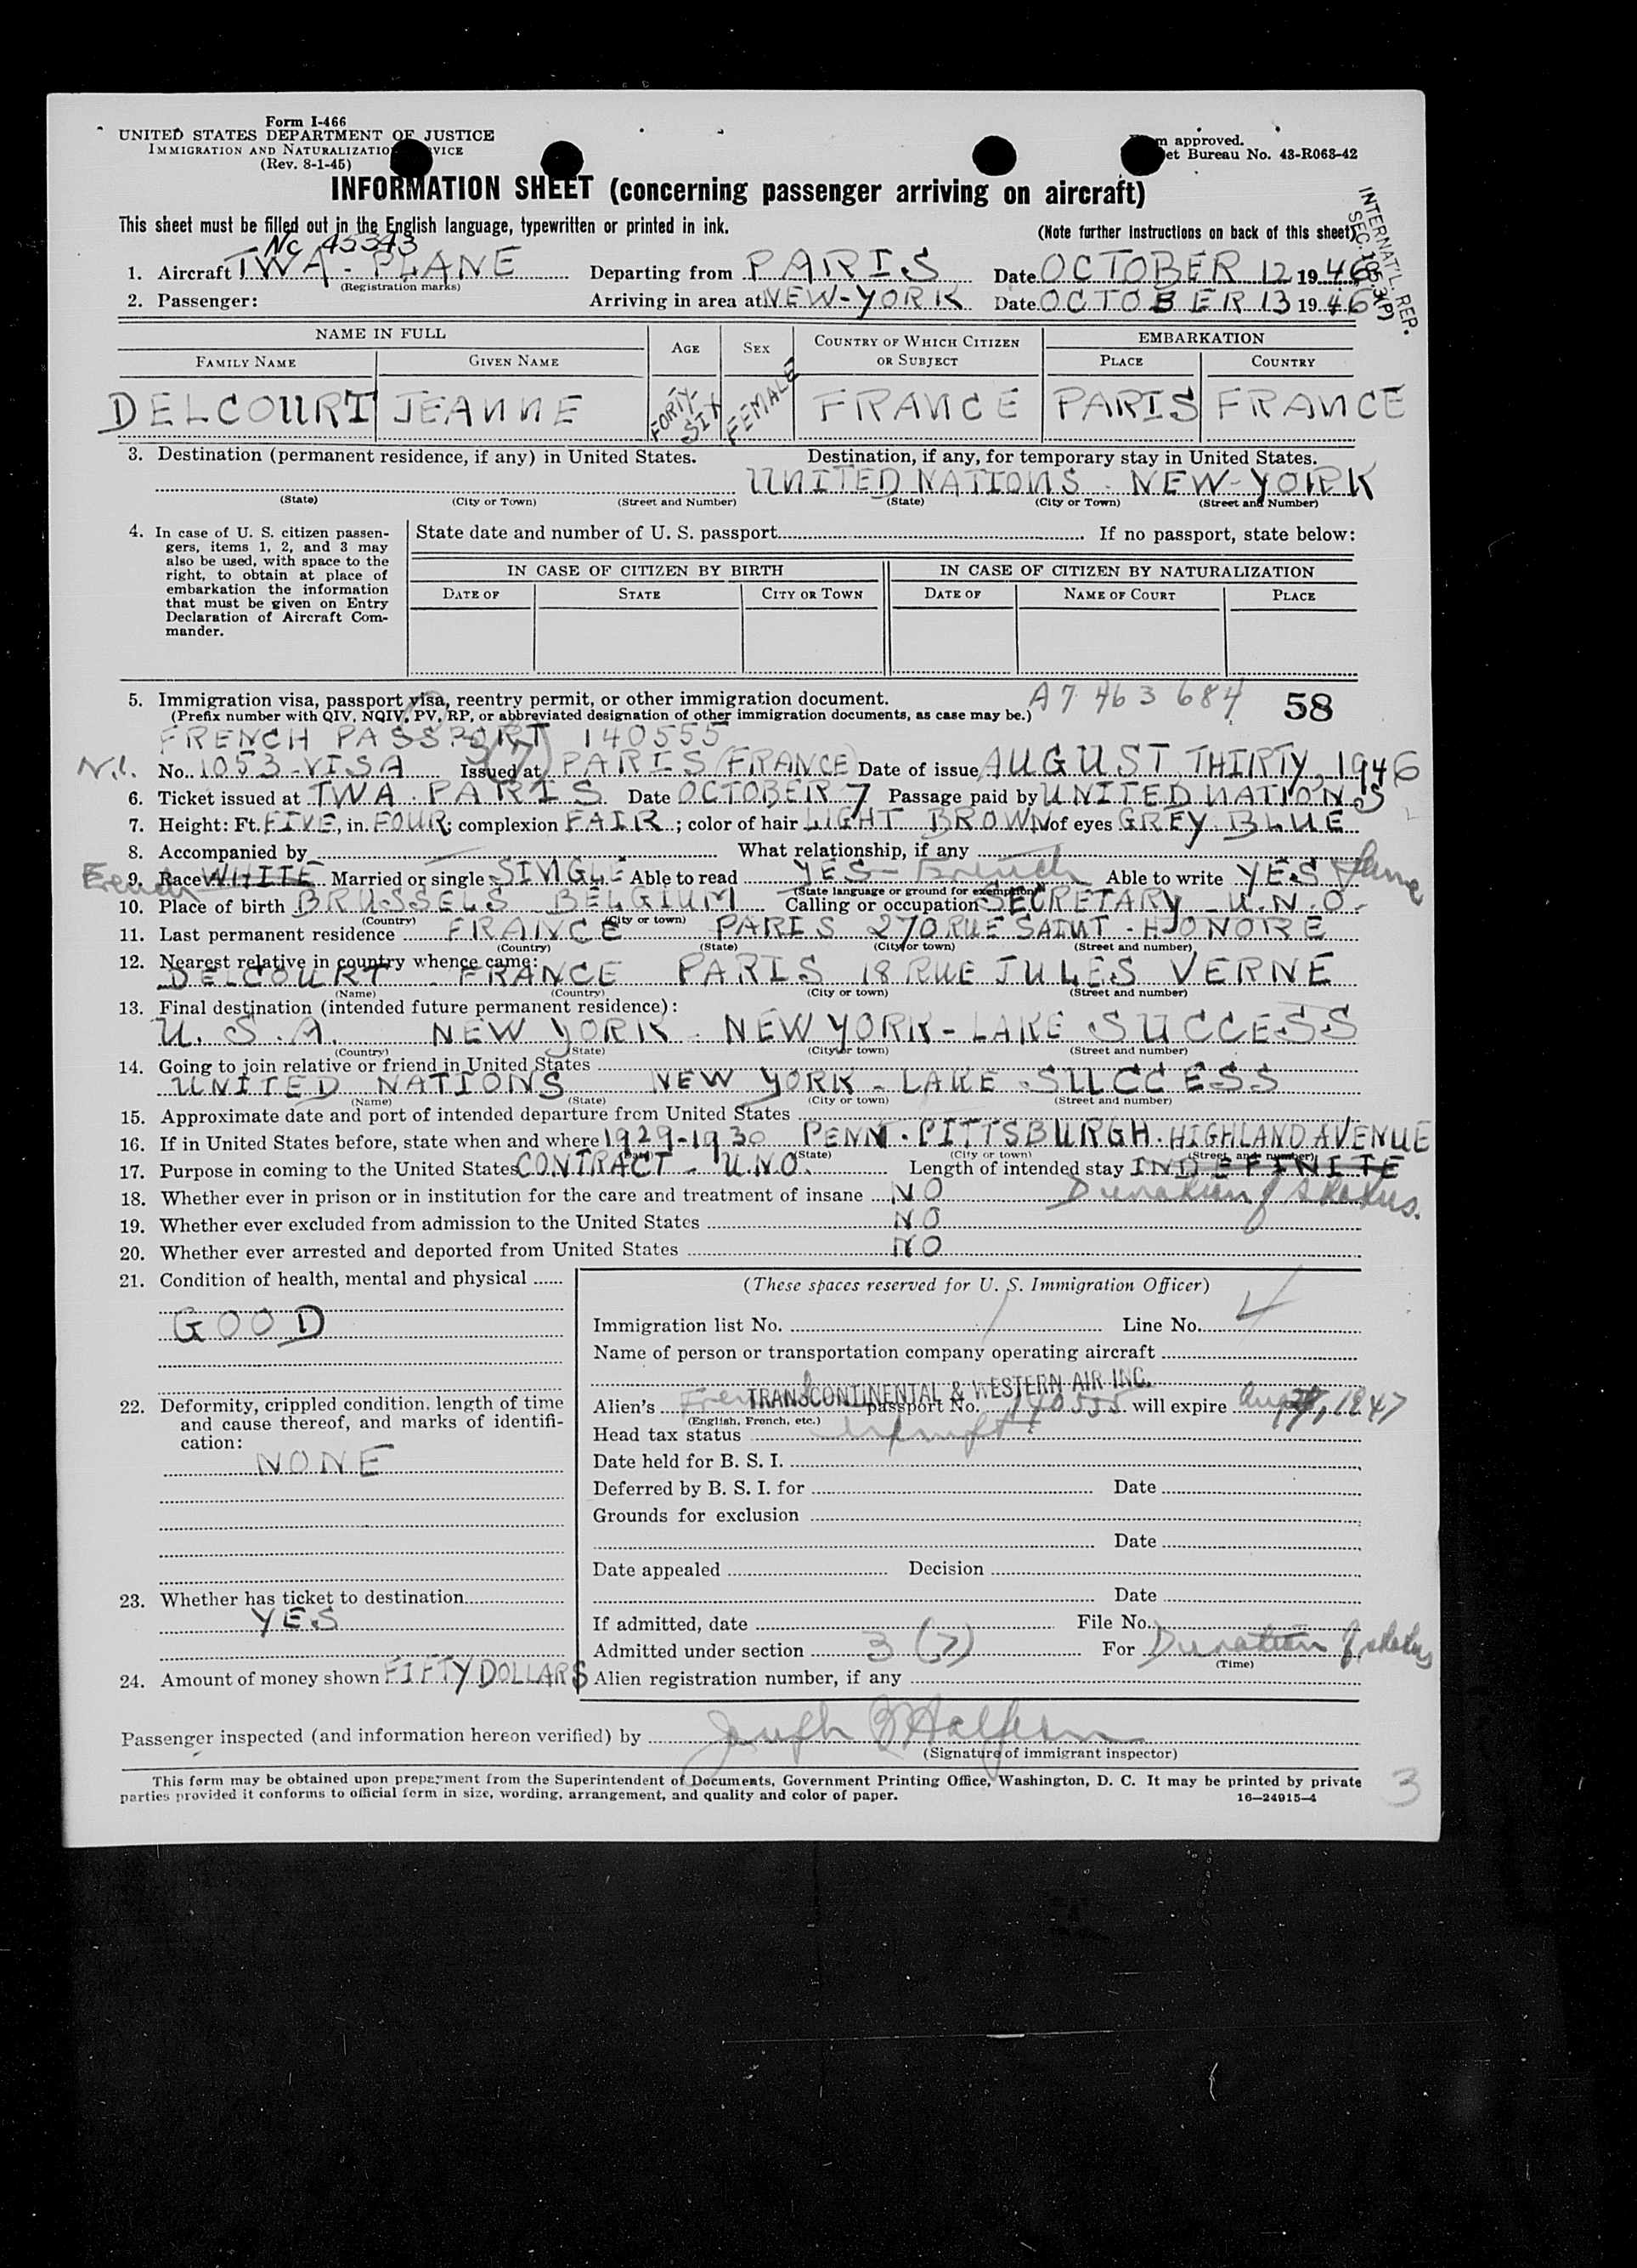 Form I-466
UNITED STATES DEPARTMENT OF JUSTICE
IMMIGRATION AND NATURALIZATIO VICE
(Rev. 8-1-45)
m approved.
et Bureau No. 43-R063-42
INFORMATION SHEET (concerning passenger arriving on aircraft)
This sheet must be filled out in the English language, typewritten or printed in ink.
(Note further instructions on back of this sheet)
INTERNAT'L. REP.
SEC. 105.3(P)
Nc 45343
1. Aircraft TWA - PLANE Departing from PARIS Date OCTOBER 12 1946
(Registration marks)
2. Passenger: Arriving in area at NEW-YORK Date OCTOBER 13 1946
NAME IN FULL AGE SEX COUNTRY OF WHICH CITIZEN OR SUBJECT EMBARKATION
FAMILY NAME GIVEN NAME PLACE COUNTRY
DELCOURT JEANNE FORTY SIX FEMALE FRANCE PARIS FRANCE
3. Destination (permanent residence, if any) in United States. Destination, if any, for temporary stay in United States.
UNITED NATIONS - NEW-YORK
(State) (City or Town) (Street and Number) (State) (City or Town) (Street and Number)
4. In case of U. S. citizen passengers, items 1, 2, and 3 may
also be used, with space to the
right, to obtain at place of
embarkation the information
that must be given on Entry
Declaration of Aircraft Commander.
State date and number of U. S. passport If no passport, state below:
IN CASE OF CITIZEN BY BIRTH IN CASE OF CITIZEN BY NATURALIZATION
DATE OF STATE CITY OR TOWN DATE OF NAME OF COURT PLACE
5. Immigration visa, passport visa, reentry permit, or other immigration document. A7 463 684 58
(Prefix number with QIV, NQIV, PV, RP, or abbreviated designation of other immigration documents, as case may be.)
FRENCH PASSPORT 140555
3(7)
N.I. No. 1053-VISA Issued at PARIS (FRANCE) Date of issue AUGUST THIRTY, 1946
6. Ticket issued at TWA. PARIS Date OCTOBER 7 Passage paid by UNITED NATIONS
7. Height: Ft. FIVE, in. FOUR; complexion FAIR; color of hair LIGHT BROWN of eyes GREY-BLUE
8. Accompanied by What relationship, if any
French 9. Race WHITE Married or single SINGLE Able to read YES - French Able to write YES Same
(State language or ground for exemption)
10. Place of birth BRUSSELS BELGIUM Calling or occupation SECRETARY U.N.O.
(Country) (City or town)
11. Last permanent residence FRANCE PARIS 270 RUE SAINT-HONORE
(Country) (State) (City or town) (Street and number)
12. Nearest relative in country whence came:
DELCOURT - FRANCE PARIS 18 RUE JULES VERNE
(Name) (Country) (City or town) (Street and number)
13. Final destination (intended future permanent residence):
U.S.A. NEW YORK - NEW YORK - LAKE SUCCESS
(Country) (State) (City or town) (Street and number)
14. Going to join relative or friend in United States
UNITED NATIONS NEW YORK - LAKE-SUCCESS
(Name) (State) (City or town) (Street and number)
15. Approximate date and port of intended departure from United States
16. If in United States before, state when and where 1929-1930 PENN. PITTSBURGH. HIGHLAND AVENUE
(State) (City or town) (Street and number)
17. Purpose in coming to the United States CONTRACT - U.N.O. Length of intended stay INDEFINITE
18. Whether ever in prison or in institution for the care and treatment of insane NO Duration of status.
19. Whether ever excluded from admission to the United States NO
20. Whether ever arrested and deported from United States NO
21. Condition of health, mental and physical
GOOD
22. Deformity, crippled condition. length of time
and cause thereof, and marks of identification:
NONE
23. Whether has ticket to destination
YES
24. Amount of money shown FIFTY DOLLARS
(These spaces reserved for U. S. Immigration Officer)
Immigration list No. Line No. 4
Name of person or transportation company operating aircraft
TRANSCONTINENTAL & WESTERN AIR INC.
Alien's French passport No. 140555 will expire Aug 1947
(English, French, etc.)
Head tax status exempt
Date held for B. S. I.
Deferred by B. S. I. for Date
Grounds for exclusion
Date
Date appealed Decision
Date
If admitted, date File No.
Admitted under section 3 (7) For Duration of status
(Time)
Alien registration number, if any
Passenger inspected (and information hereon verified) by Joseph B Halfern
(Signature of immigrant inspector)
This form may be obtained upon prepayment from the Superintendent of Documents, Government Printing Office, Washington, D. C. It may be printed by private
parties provided it conforms to official form in size, wording, arrangement, and quality and color of paper. 16—24915-4
3